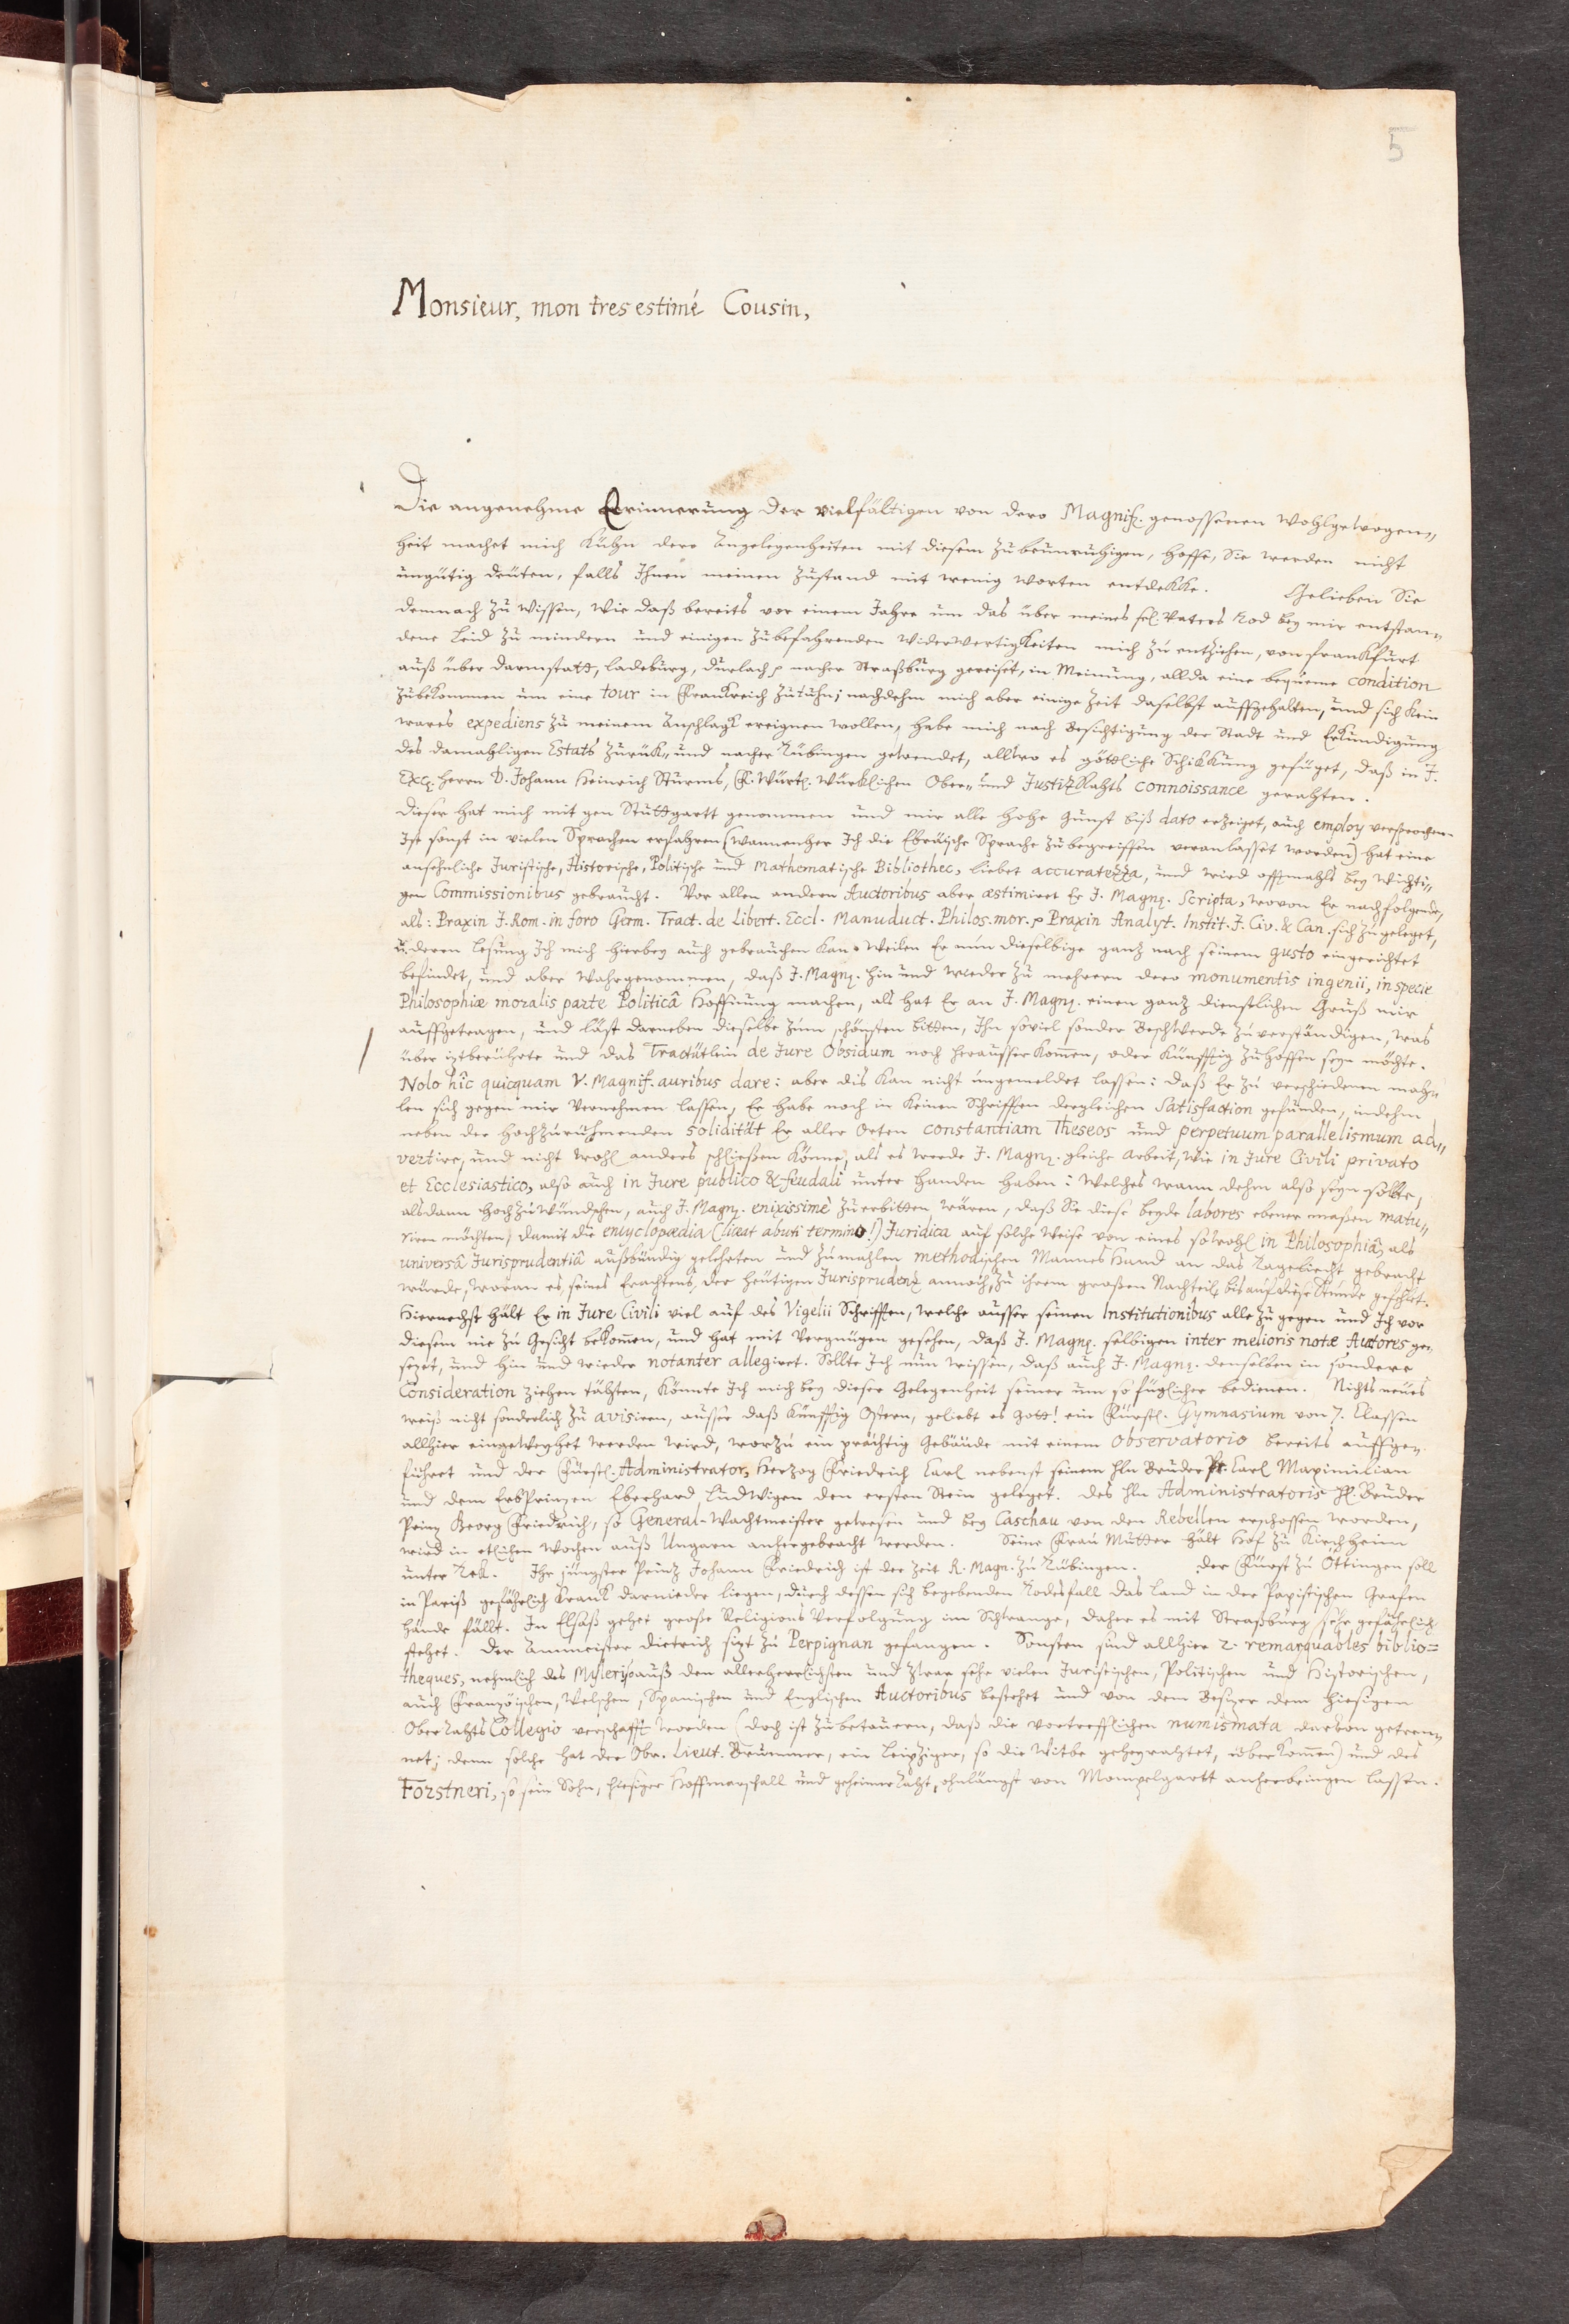 5
Monsieur, mon tres estimé Cousin,
Die angenehme Erinnerung der vielfältigen von dero Magnif. genossenen Wohlgewogen„
heit machet mich kühn dero Angelegenheiten mit diesem zubeunruhigen, hoffe, Sie werden nicht
ungütig deuten, falls Ihnen meinen Zustand mit wenig Worten entdekke. Gelieben Sie
demnach zu wissen, wie daß bereits vor einem Jahre um das über meines sel. Vaters Tod bey mir entstan„
dene Leid zu mindern und einigen zubefahrenden Widerwertigkeiten mich zu entziehen, von Frankfurt
auß über Darmstatt, Ladeburg, Durlach nacher Straßburg gereiset, in Meinung, allda eine bequeme condition
zubekommen um eine tour in Frankreich zutuhn; nachdehm mich aber einige Zeit daselbst auffgehalten, und sich kein
wares expediens zu meinem Anschlage ereignen wollen, habe mich nach Besichtigung der Stadt und Erkundigung
des damahligen Estats zurük„ und nacher Tübingen gewendet, allwo es göttliche Schikkung gefüget, daß in J.
Exc. Herrn D. Johann Heinrich Sturms, F. Würt. Würklichen Ober„ und Justiz Rahts connoissance gerahten.
Dieser hat mich mit gen Stuttgartt genommen und mir alle hohe Gunst biß dato erzeiget, auch employ versprochen.
Ist sonst in vielen Sprachen erfahren (wannenher Ich die Ebräische Sprache zubegreiffen veranlasset worden) hat eine
ansehnliche Juristische, Historische, Politische und Mathematische Bibliothec, liebet accuratezza, und wird offtmahls bey wichti„
gen Commissionibus gebraucht. Vor allen andern Auctoribus aber æstimiret Er J. Magn. Scripta, wovon Er nachfolgende,
als: Praxin J. Rom. in foro Germ. Tract. de Libert. Eccl. Manuduct. Philos. mor. Praxin Analyt. Instit. J. Civ. & Can. sich zugeleget,
u. deren Lesung Ich mich hierbey auch gebrauchen kan. Weilen Er nun dieselbige ganz nach seinem gusto eingerichtet
befindet, und aber wahrgenommen, daß J. Magn. hin und wieder zu mehrern dero monumentis ingenii, in specie
Philosophiæ moralis parte Politicâ Hoffnung machen, als hat Er an J. Magn. einen ganz dienstlichen Gruß mir
auffgetragen, und läst darneben dieselbe zum schönsten bitten, Ihn soviel sonder Beschwerde zuverständigen, was
über iztberührte und das Tractätlein de Jure Obsidum noch herausser kommen, oder künfftig zuhoffen seyn möchte.
Nolo hîc quicquam V. Magnif. auribus dare: aber dis kan nicht ungemeldet lassen: daß Er zu verschiedenen mah„
len sich gegen mir vernehmen lassen, Er habe noch in keinen Schrifften dergleichen Satisfaction gefunden, indehm
neben der hochzurühmenden solidität Er aller Orten constantiam Theseos und perpetuum parallelismum ad„
vertire, und nicht wohl anders schließen könne, als es werde J. Magn. gleiche Arbeit, wie in Jure Civili privato
et Ecclesiastico, also auch in Jure publico & feudali unter Handen haben: Welches wann dehm also seyn solte,
alsdann hochzuwündschen, auch J. Magn. enixissimè zuerbitten wären, daß Sie diese beyde labores ebener maßen matu„
riren möchten, damit die encyclopædia (liceat abuti termino!) Juridica auf solche Weise von eines sowohl in Philosophiâ, als
universâ Jurisprudentiâ außbündig gelehrten und zumahlen methodischen Mannes Hand an das Tageliecht gebracht
würde, woran es, seines Erachtens, der heutigen Jurisprudenz annoch, zu ihrem großen Nachteil, bis auf diese Stunde gefehlet.
Hiernechst hält Er in Jure Civili viel auf des Vigelii Schrifften, welche ausser seinen Institutionibus alle zugegen und Ich vor
diesem nie zu Gesicht bekommen, und hat mit Vergnügen gesehen, daß J. Magn. selbigen inter melioris notæ Auctores ge„
sezet, und hin und wieder notanter allegiret. Sollte Ich nun wissen, daß auch J. Magn. denselben in sondere
Consideration ziehen tähten, könnte Ich mich bey dieser Gelegenheit seiner um so füglicher bedienen. Nichts neues
weiß nicht sonderlich zu avisiren, ausser daß künfftig Ostern, geliebt es Gott! ein Fürstl. Gymnasium von 7. Classen
allhier eingeweyhet werden wird, worzu ein prächtig Gebäude mit einem Observatorio bereits auffge„
führet und der Fürstl. Administrator, Herzog Friedrich Carl nebenst seinem Hln Bruder Pr. Carl Maximilian
und dem ErbPrinzen Eberhard Ludwigen den ersten Stein geleget. Des Hln Administratoris Hl. Bruder
Prinz Georg Friedrich, so General-Wachtmeister gewesen und bey Caschau von den Rebellen erschossen worden,
wird in etlichen Wochen auß Ungarn anhergebracht werden. Seine Frau Mutter hält Hof zu Kirchheim
unter Tek. Ihr jüngster Prinz Johann Friedrich ist der Zeit R. Magn. zu Tübingen. Der Fürst zu Öttingen soll
in Pariß gefährlich krank darnieder liegen, durch dessen sich begebenden Todesfall das Land in der Papistischen Grafen
Hände fällt. In Elsaß gehet große Religions Verfolgung im Schwange, daher es mit Straßburg sehr gefährlich
stehet. Der Ammeister Dietrich sizt zu Perpignan gefangen. Sonsten sind allhier 2. remarquables biblio=
theques, nehmlich des Myleri, so auß den allerherrlichsten und zwar sehr vielen Juristischen, Politischen und Historischen,
auch Französischen, Welschen, Spanischen und Englischen Auctoribus bestehet und von dem Besizer dem hiesigen
Ober Rahts Collegio verschafft worden (doch ist zubetauern, daß die vortrefflichen numismata darvon getren„
net; denn solche hat der Obr. Lieut. Brummer, ein Leipziger, so die Witbe geheyrahtet, überkommen) und des
Forstneri, so sein Sohn, hiesiger Hoffmarschall und geheimer Raht, ohnlängst von Mompelgartt anherbringen lassen.